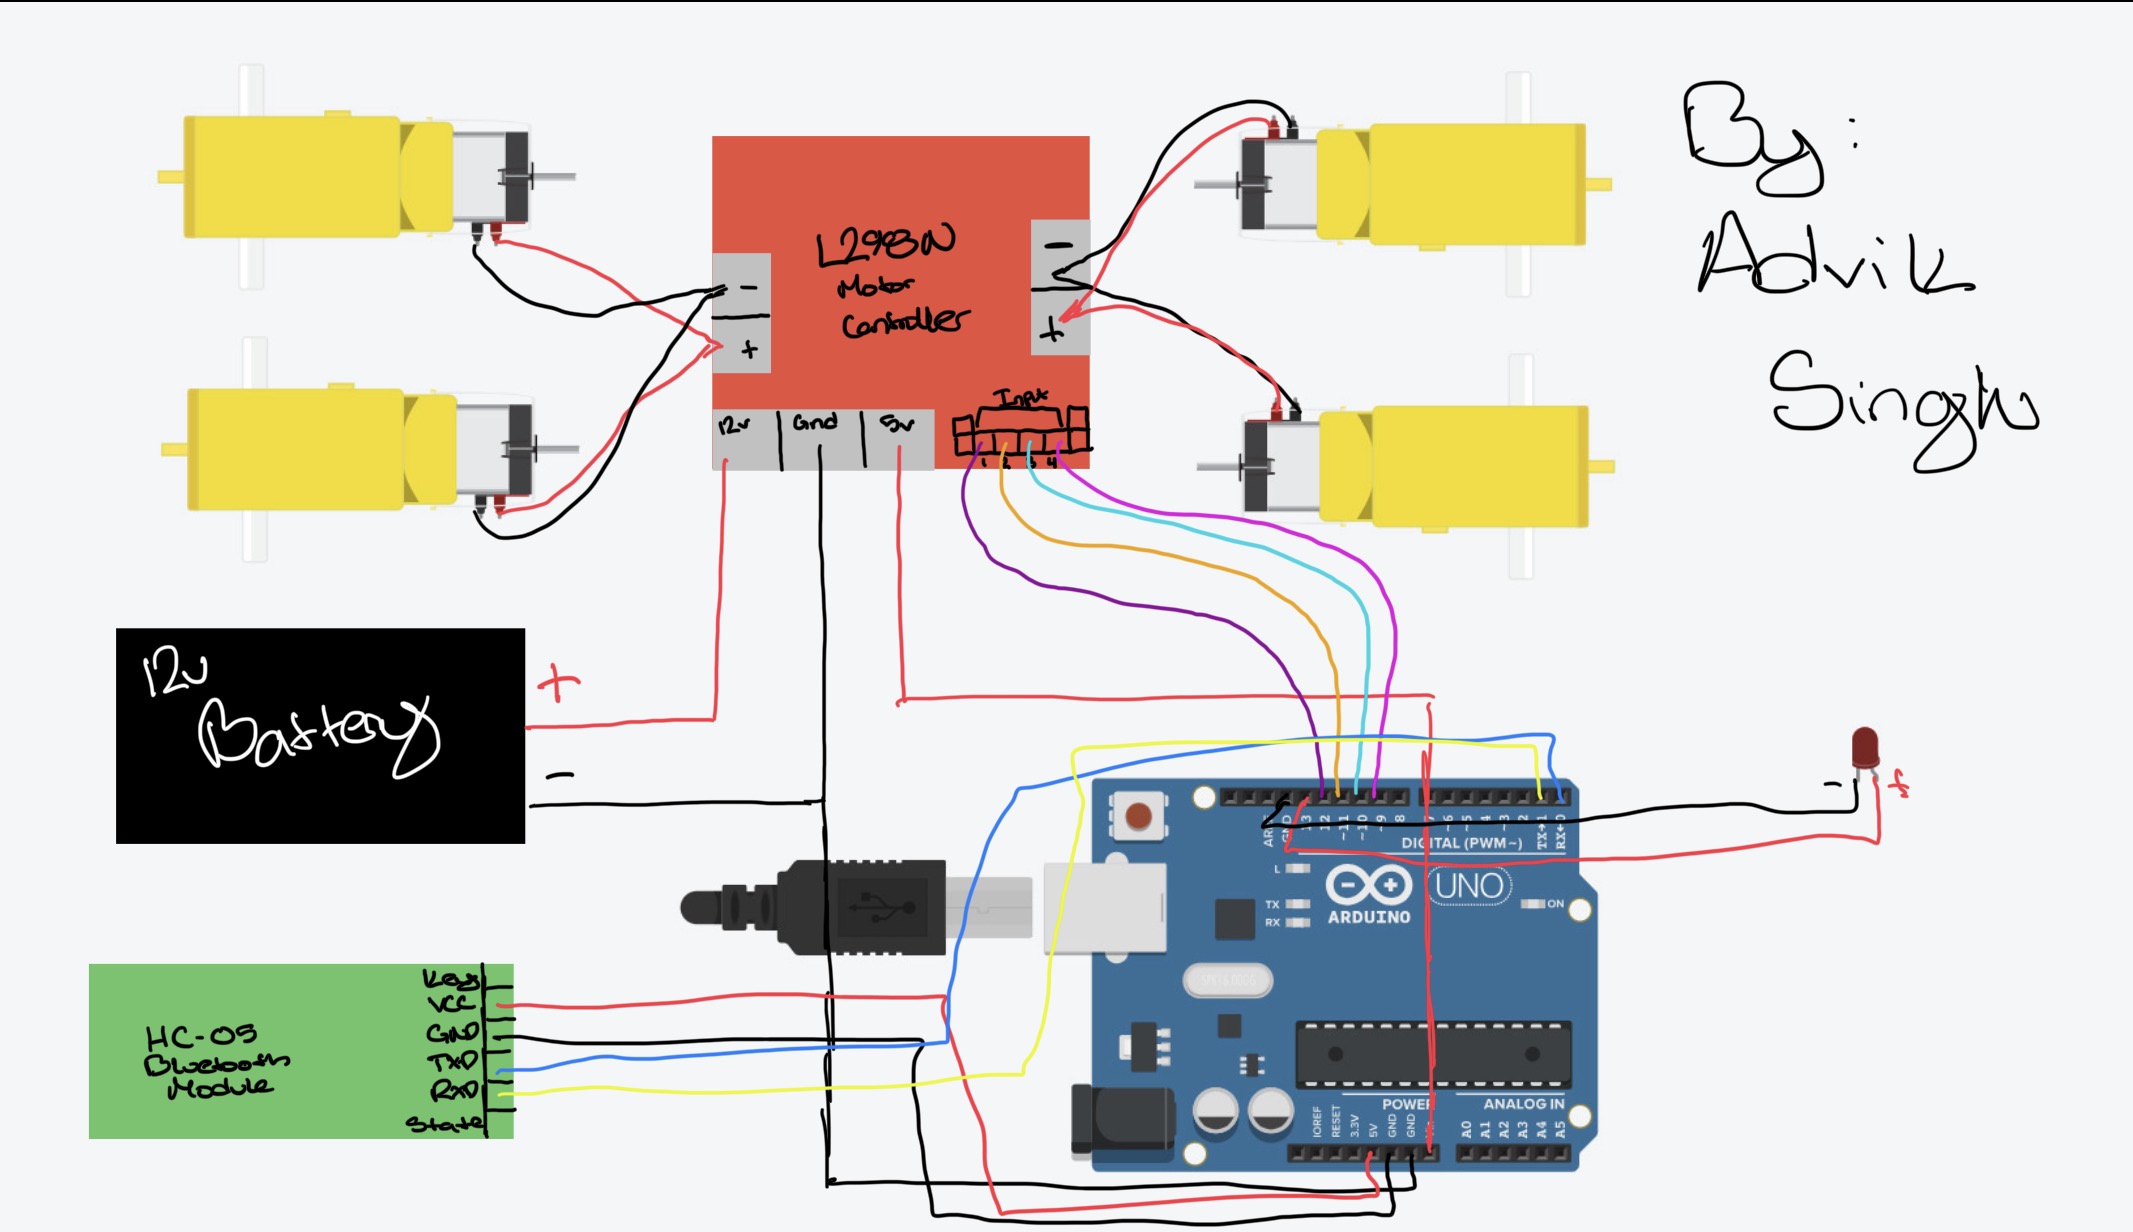 By:
Advik
Singh
L298N
Motor
Controller
-
+
-
+
12v
Gnd
5v
Input
1 2 3 4
12v
Battery
+
-
- +
HC-05
Bluetooth
Module
Key
VCC
GND
TXD
RXD
State
GND 13 12 ~11 ~10 ~9 8 ~6 ~5 4 ~3 2 TX→1 RX←0
DIGITAL (PWM~)
L
TX
RX
UNO
ARDUINO
ON
POWER
ANALOG IN
IOREF RESET 3.3V 5V GND GND
A0 A1 A2 A3 A4 A5